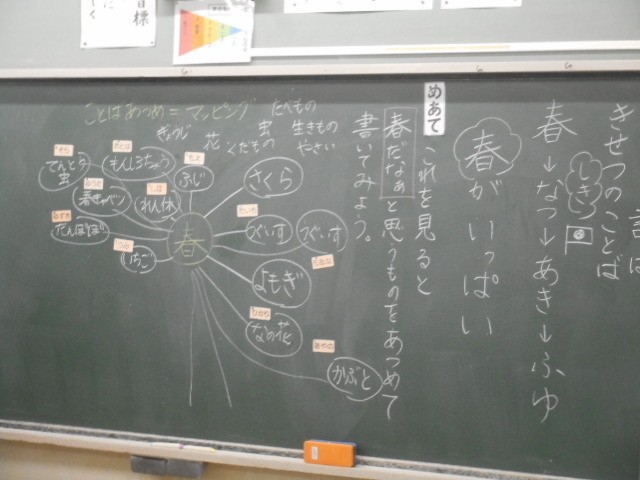 きせつのことば
春→なつ→あき→ふゆ
しき
春がいっぱい
めあて
これを見ると
春だなぁと思うものをあつめて
書いてみよう。
ことばあつめ＝マッピング
たべもの
ぎょうじ
花
虫
生きもの
くだもの
やさい
春
てんとう虫
もんしろちょう
ふじ
さくら
春キャベツ
れん休
たんぽぽ
いちご
うぐいす
つぐいす
よもぎ
なの花
かぶと
目標